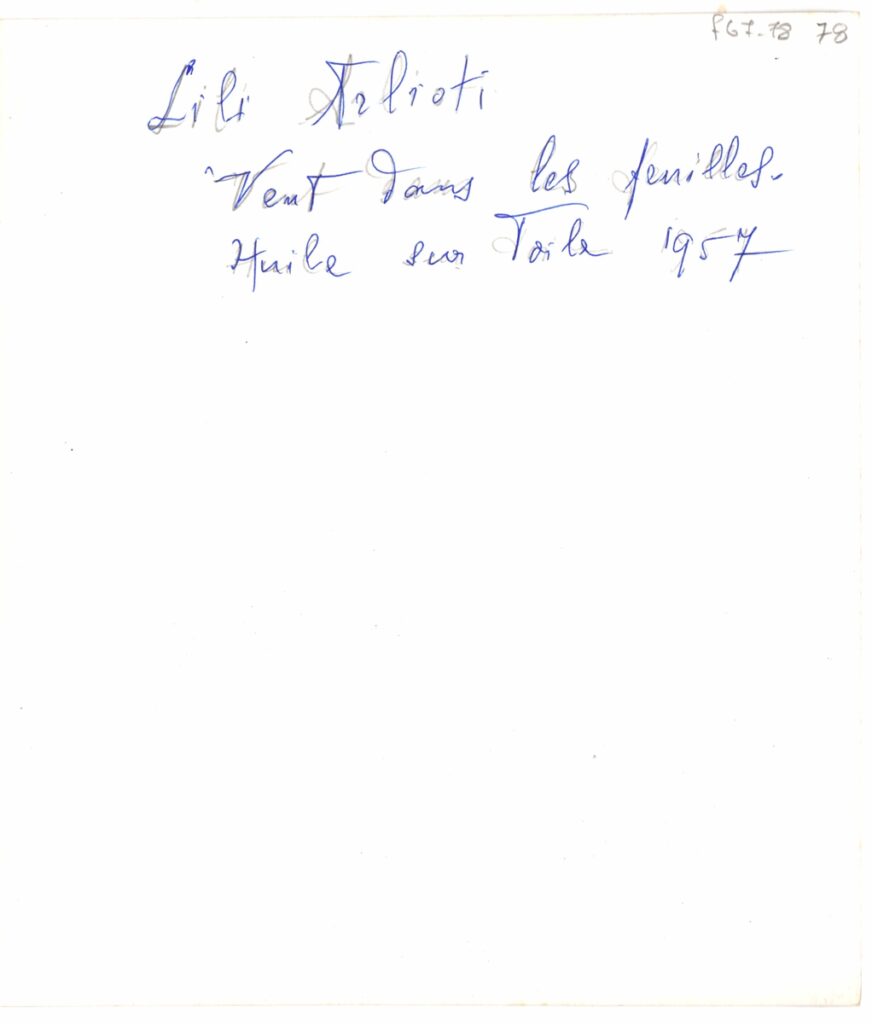 f67-78 78
Lili Arlioti
Vent dans les feuilles.
Huile sur Toile 1957